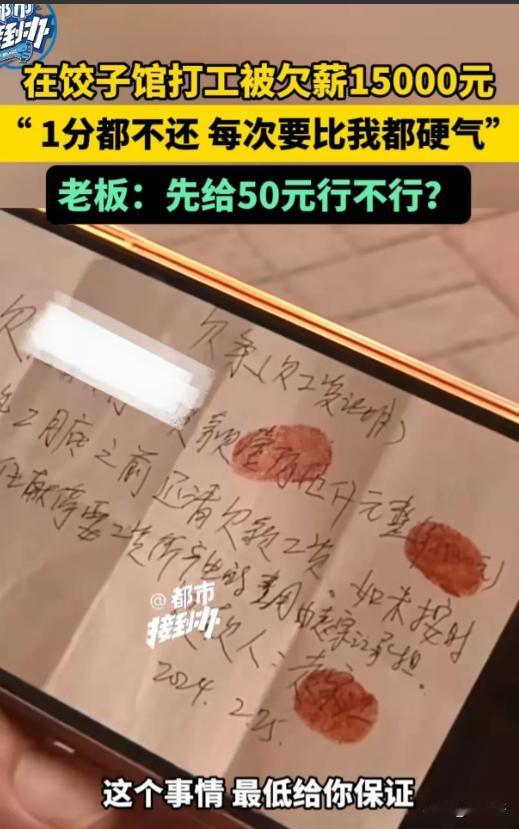 都市
接到办
在饺子馆打工被欠薪15000元
“1分都不还 每次要比我都硬气”
老板：先给50元行不行？
欠条（欠工资证明）
欠
额壹万伍仟元整
2月底之前还清欠款工资，如未按时
要工资所产生的费用由
承担.
欠款人：
2024.2.25.
@都市
接到办
这个事情 最低给你保证